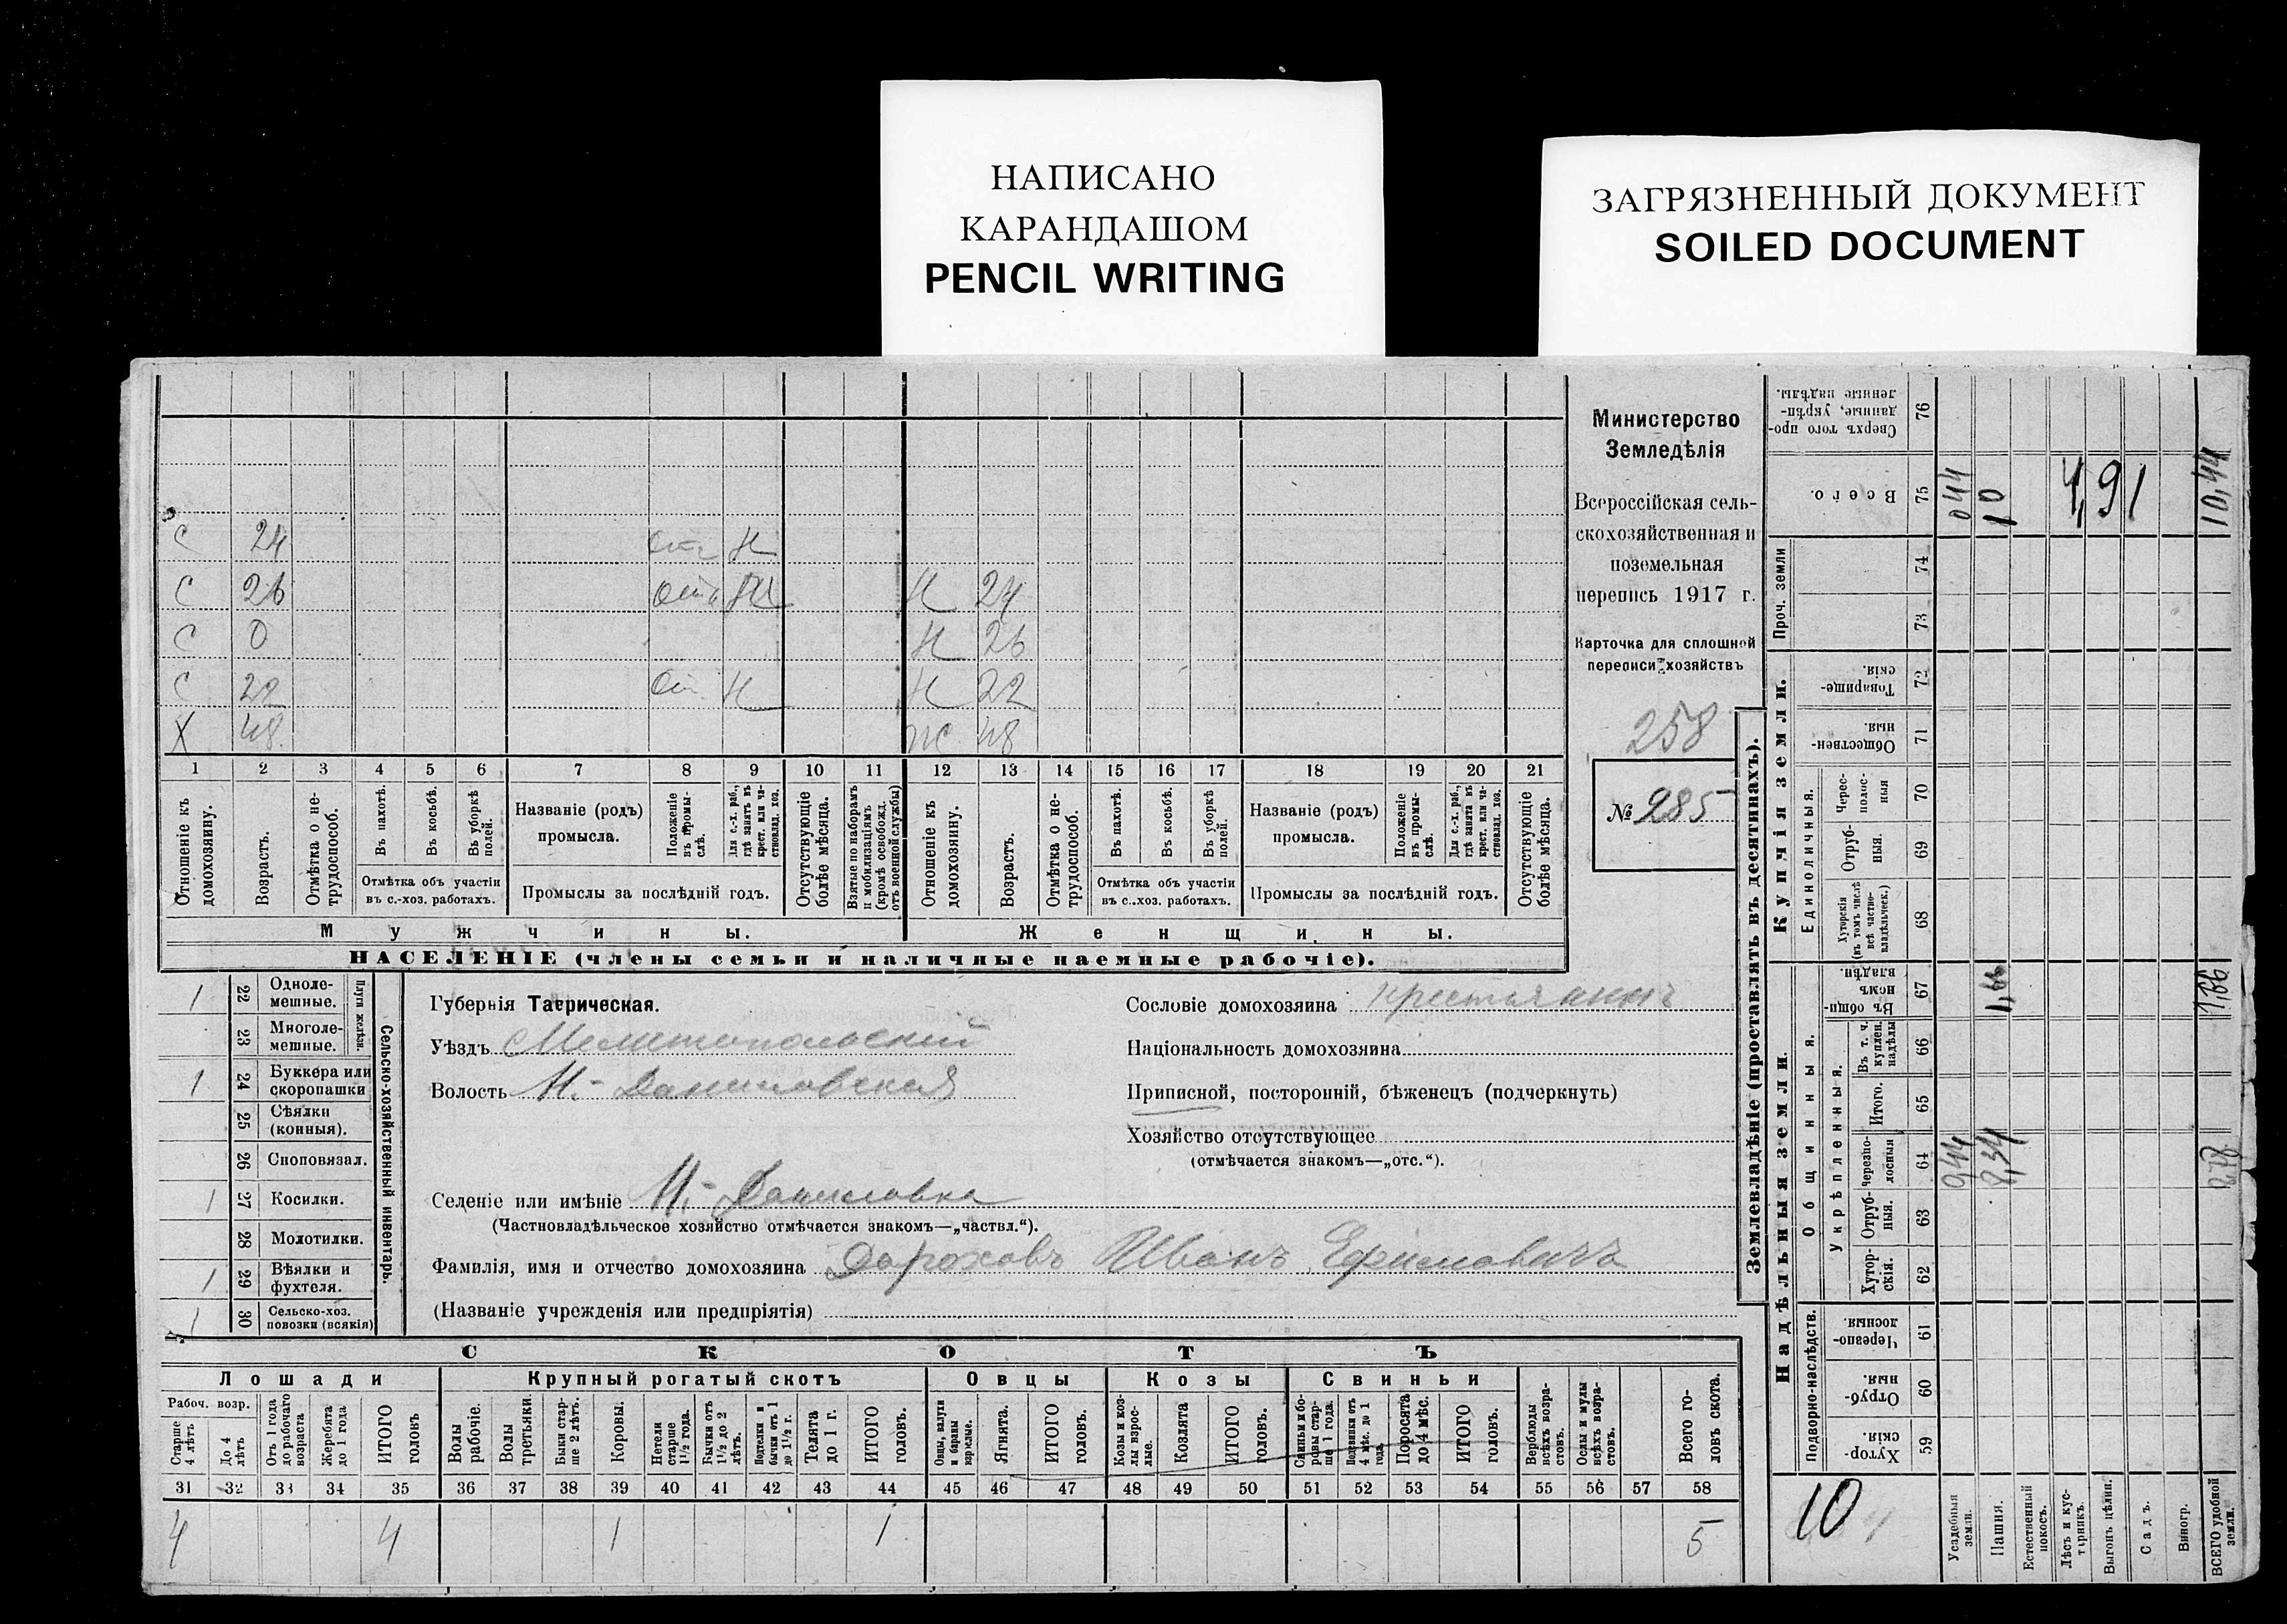 НАПИСАНО
КАРАНДАШОМ
PENCIL WRITING
ЗАГРЯЗНЕННЫЙ ДОКУМЕНТ
SOILED DOCUMENT
Министерство
Земледѣлія
Всероссійская сель-
скохозяйственная и
поземельная
перепись 1917 г.
Карточка для сплошной
переписи хозяйствъ
258
№ 285
С 24 Н
С 26 Н 24
С 0 Н 26
С 22 Н Н 22
Х 48 ж 48
1 2 3 4 5 6 7 8 9 10 11 12 13 14 15 16 17 18 19 20 21
Отношеніе къ домохозяину.
Возрастъ.
Отмѣтка о не-трудоспособ.
Въ пахотѣ.
Въ косьбѣ.
Въ уборкѣ полей.
Отмѣтка объ участіи
въ с.-хоз. работахъ.
Названіе (родъ)
промысла.
Положеніе въ промы-слѣ.
Для с.-х. раб., гдѣ занятъ въ крест. или ча-стновлад. хоз.
Промыслы за послѣдній годъ.
Отсутствующіе болѣе мѣсяца.
Взятые по наборамъ и мобилизаціямъ (кромѣ освобожд. отъ военной службы)
Отношеніе къ домохозяину.
Возрастъ.
Отмѣтка о не-трудоспособ.
Въ пахотѣ.
Въ косьбѣ.
Въ уборкѣ полей.
Отмѣтка объ участіи
въ с..хоз. работахъ.
Названіе (родъ)
промысла.
Положеніе въ промы-слѣ.
Для с.-х. раб., гдѣ занятъ въ крест. или ча-стновлад. хоз.
Промыслы за послѣдній годъ.
Отсутствующіе болѣе мѣсяца.
Мужчины. Женщины.
НАСЕЛЕНІЕ (члены семьи и наличные наемные рабочіе).
1 22 Одноле-мешные.
Плуги желѣзн.
23 Многоле-мешные.
1 24 Буккера или скоропашки
25 Сѣялки (конныя).
26 Сноповязал.
1 27 Косилки.
28 Молотилки.
1 29 Вѣялки и фухтеля.
1 30 Сельско-хоз. повозки (всякія)
Сельско-хозяйственный инвентарь.
Губернія Таврическая.
Уѣздъ Мелитопольскій
Волость Н.-Даниловская
Селеніе или имѣніе Н.-Даниловка
(Частновладѣльческое хозяйство отмѣчается знакомъ—„частвл.“).
Фамилія, имя и отчество домохозяина Дороховъ Иванъ Ефимовичъ
(Названіе учрежденія или предпріятія)
Сословіе домохозяина крестьянинъ
Національность домохозяина
Приписной, посторонній, бѣженецъ (подчеркнуть)
Хозяйство отсутствующее
(отмѣчается знакомъ—„отс.“).
СКОТЪ
Лошади Крупный рогатый скотъ Овцы Козы Свиньи
Рабоч. возр.
Старше 4 лѣтъ
До 4 лѣтъ
Отъ 1 года до рабочаго возраста
Жеребята до 1 года
ИТОГО головъ
Волы рабочіе.
Волы третьяки.
Быки стар-ше 2 лѣтъ.
Коровы.
Нетели старше 1½ года.
Бычки отъ 1½ до 2 лѣтъ.
Подтелки и бычки отъ 1 до 1½ г.
Телята до 1 г.
ИТОГО головъ.
Овцы, валухи и бараны взрослые.
Ягнята.
ИТОГО головъ.
Козы и коз-лы взрос-лые.
Козлята
ИТОГО головъ.
Свиньи и бо-ровы стар-ше 1 года.
Подсвинки отъ 4 мѣс. до 1 года.
Поросята до 4 мѣс.
ИТОГО головъ.
Верблюды всѣхъ возра-стовъ.
Ослы и мулы всѣхъ возра-стовъ.
Всего го-ловъ скота.
31 32 33 34 35 36 37 38 39 40 41 42 43 44 45 46 47 48 49 50 51 52 53 54 55 56 57 58
4 4 1 1 5
Землевладѣніе (проставлять въ десятинахъ).
Надѣльныя земли.
Купчія земли.
Проч. земли
Подворно-наслѣдств.
Общинныя.
Укрѣпленныя.
Единоличныя.
Сверхъ того про-данные, укрѣп-ленные надѣлы. 76
Всего. 75 10 4,91 10,44
74
73
Товарище-скія. 72
Обществен-ныя. 71
Черес-полос-ныя 70
Отруб-ныя. 69
Хуторскія (въ томъ числѣ всѣ частно-владѣльческ.) 68
Въ общин-номъ владѣн. 67 1,66 1,66
Въ т. ч. куплен. надѣлы 66
Итого. 65
черезпо-лосныя 64 8,34
Отруб-ныя. 63
Хутор-скія. 62
Черезпо-лосныя 61
Отруб-ныя. 60
Хутор-скія. 59
10
Усадебныя земли.
Пашня.
Естественный покосъ.
Лѣсъ и кус-тарникъ.
Выгонъ цѣлин.
Садъ.
Виногр.
ВСЕГО удобной земли.